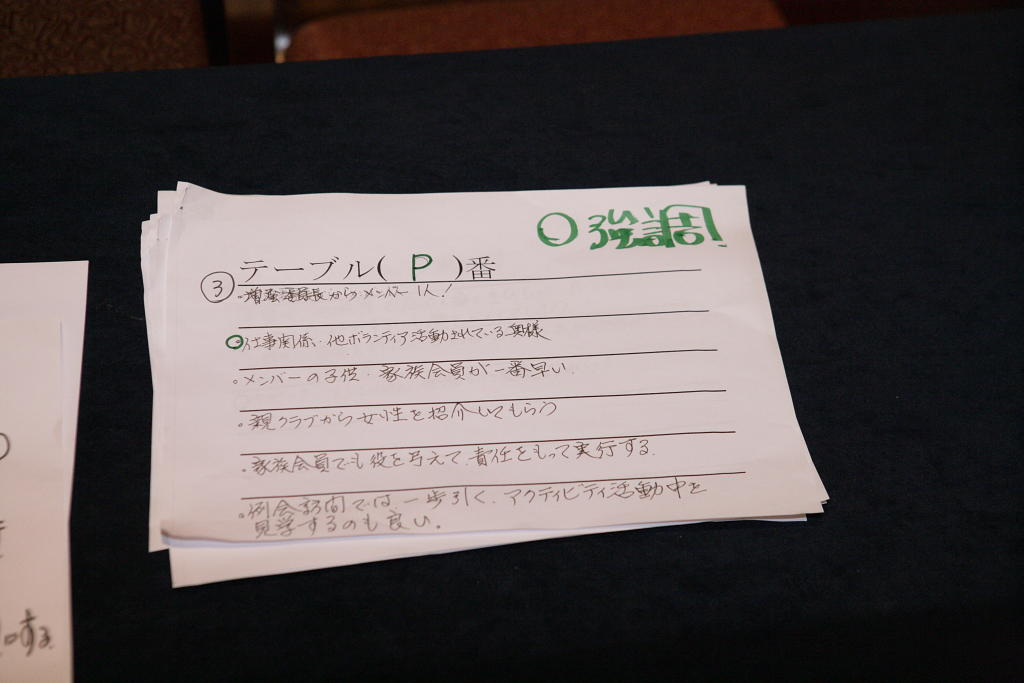 ○強調!
テーブル( P )番
③
・増強委員長からメンバー1人!
○仕事関係、他ボランティア活動されている奥様
・メンバーの子供・家族会員が一番早い
・親クラブから女性を紹介してもらう
・家族会員でも役を与えて、責任をもって実行する。
・例会訪問では一歩引く、アクティビティ活動中を
見学するのも良い。
する